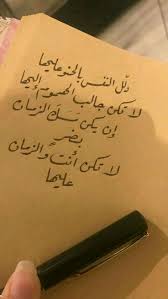 دلّل النفس بالحنو عليها
لا تكن جالب الهموم إليها
إن يكن مسّك الزمان
بضر
لا تكن أنت والزمان
عليها